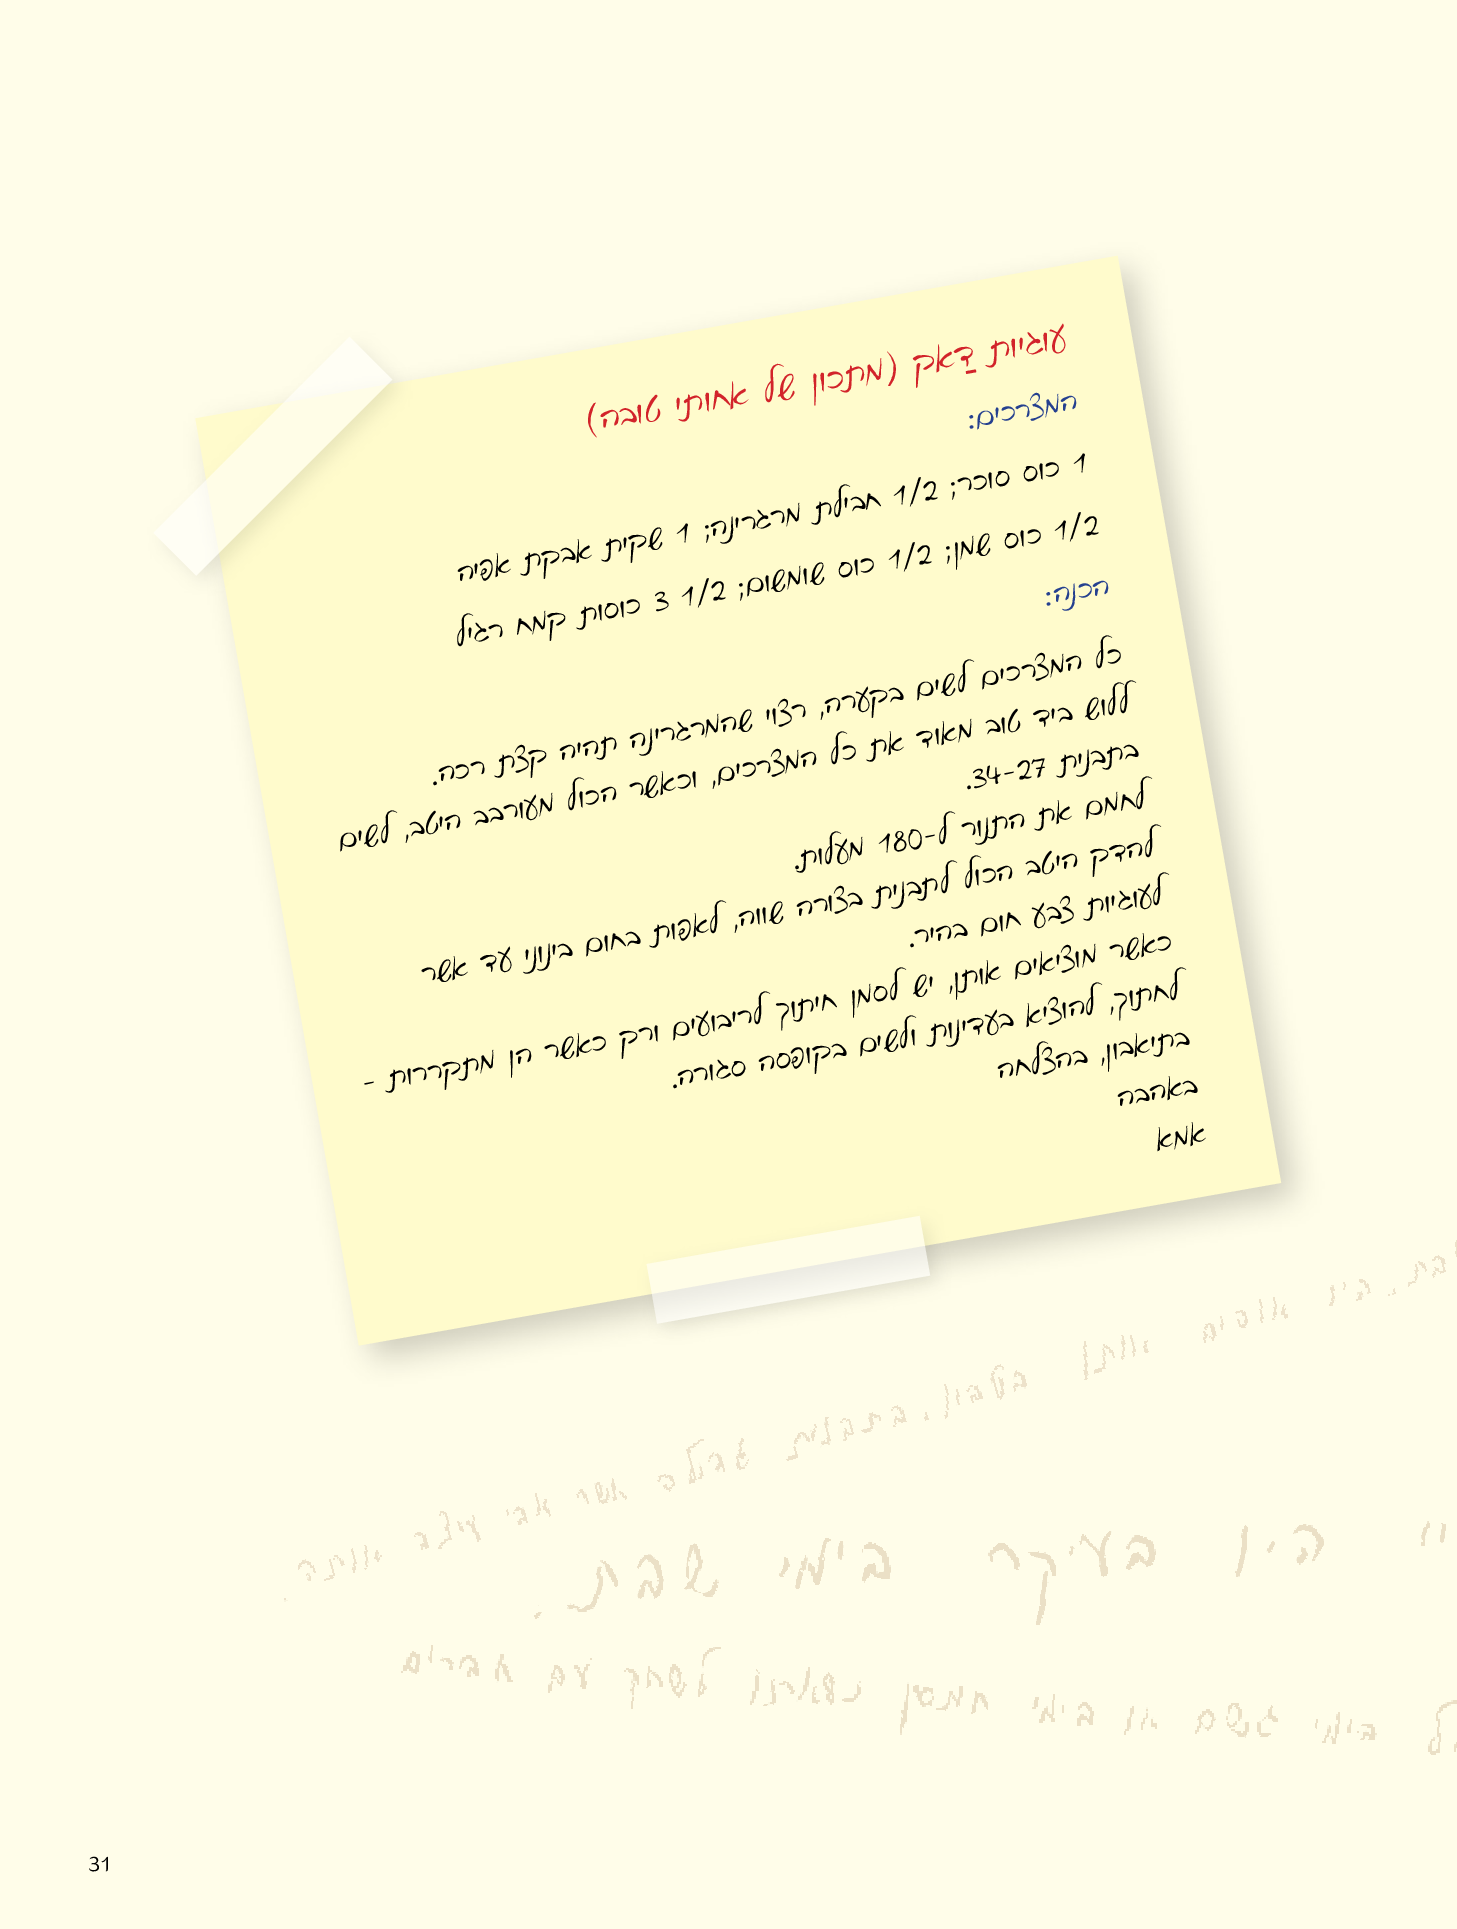 עוגיות דַאק (מתכון של אחותי טובה)
המצרכים:
1 כוס סוכר; 1/2 חבילת מרגרינה; 1 שקית אבקת אפיה
1/2 כוס שמן; 1/2 כוס שומשום; 1/2 3 כוסות קמח רגיל
הכנה:
כל המצרכים לשים בקערה, רצוי שהמרגרינה תהיה קצת רכה.
ללוש ביד טוב מאוד את כל המצרכים, וכאשר הכול מעורבב היטב, לשים
בתבנית 34-27.
לחמם את התנור ל-180 מעלות.
להדק היטב הכול לתבנית בצורה שווה, לאפות בחום בינוני עד אשר
לעוגיות צבע חום בהיר.
כאשר מוציאים אותן, יש לסמן חיתוך לריבועים ורק כאשר הן מתקררות -
לחתוך, להוציא בעדינות ולשים בקופסה סגורה.
בתיאבון, בהצלחה
באהבה
אמא
היו אוספים אותן בטבון, בתבנית גדולה אשר אבי עיצב אותה.
היו בעיקר בימי שבת.
בימי גשם או בימי חמסין נשארנו לשחק עם חברים
31